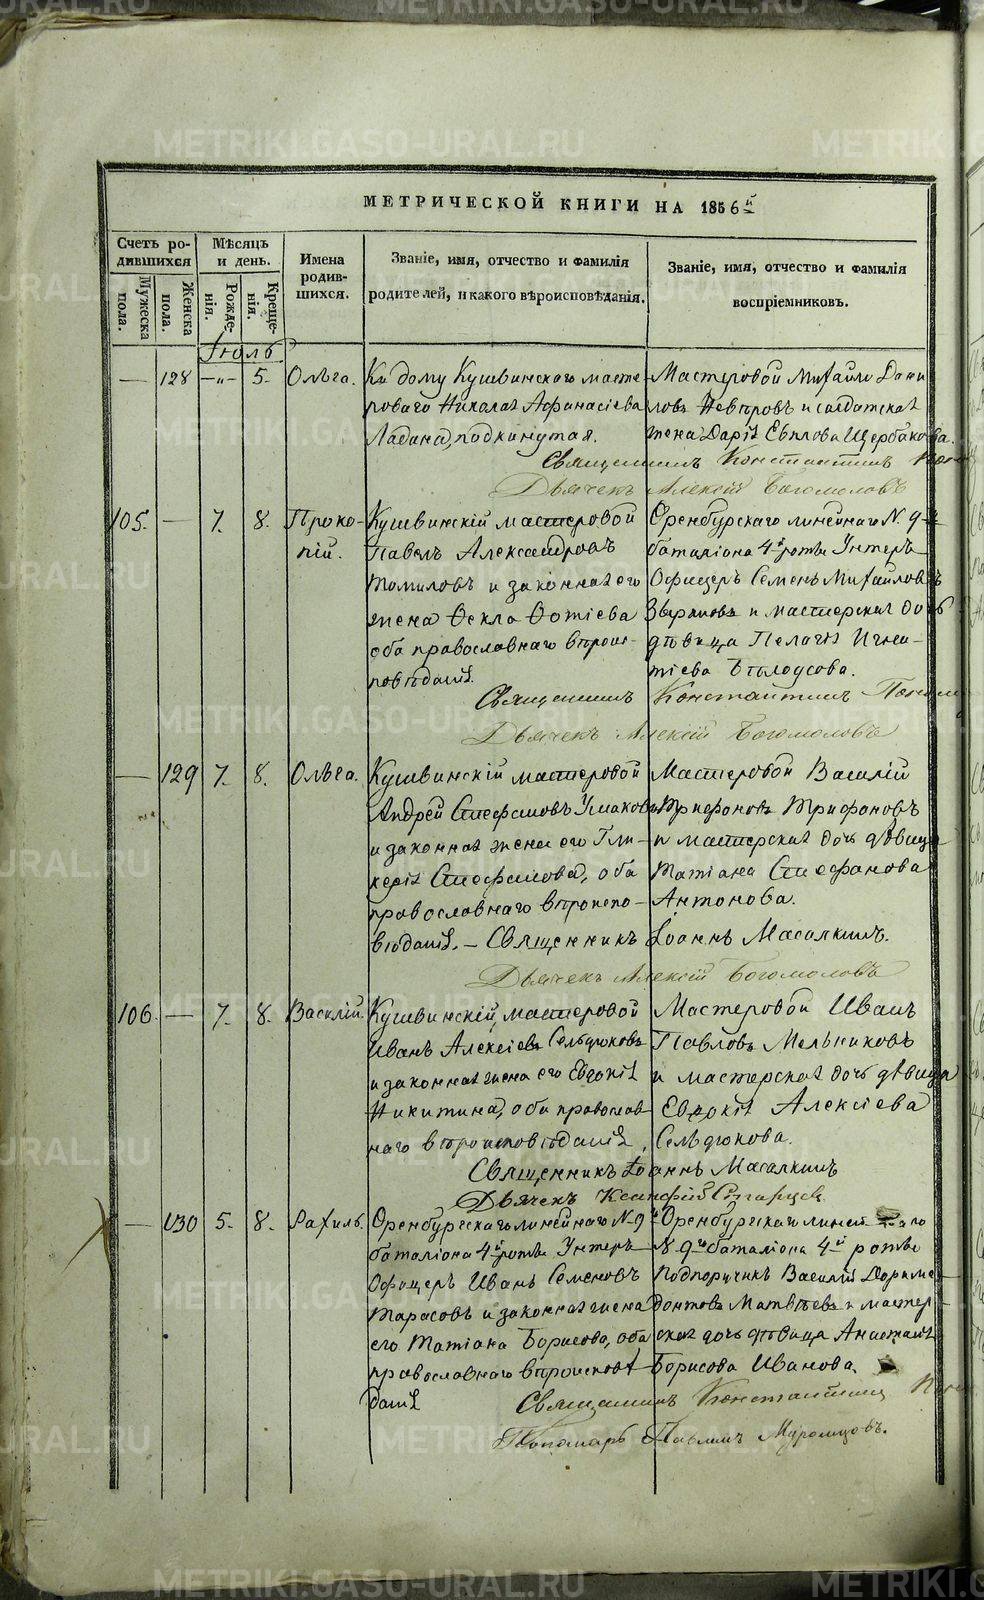 МЕТРИЧЕСКОЙ КНИГИ НА 1856й
Счетъ родившихся
Мѣсяцъ и день.
Имена родившихся.
Званіе, имя, отчество и фамилія родителей, и какого вѣроисповѣданія.
Званіе, имя, отчество и фамилія воспріемниковъ.
Мужеска пола.
Женска пола.
Рожденія.
Крещенія.
Іюль
— 128 —„— 5. Ольга.
Къ дому Кушвинскаго мастероваго Николая Афанасіева
Ладана, подкинутая.
Мастеровой Михайло Данилов
и солдатская
жена Дарія Щербакова.
Священникъ Константинъ
Дьячекъ Алексій Богомоловъ
105. — 7. 8. Прокопій.
Кушвинскій мастеровой
Павелъ Александровъ
Томиловъ и законная его
жена Ѳекла Ѳотіева
оба православнаго вѣроисповѣданія.
Оренбургскаго линейнаго N. 9
баталіона 4й роты Унтеръ
Офицеръ Семенъ Михайловъ
и мастерская дочь
дѣвица Пелагія Игнатіева
Бѣлоусова.
Священникъ Константинъ
Дьячекъ Алексій Богомоловъ
— 129 7. 8. Ольга.
Кушвинскій мастеровой
Андрей Стефановъ
и законная жена его Гликерія
Стефанова, оба
православнаго вѣроисповѣданія. —
Мастеровой Василій
Трифоновъ Трифоновъ
и мастерская дочь дѣвица
Татіана Стефанова
Антонова.
Священникъ Іоаннъ Масалкинъ.
Дьячекъ Алексій Богомоловъ
106. — 7. 8. Василій.
Кушвинскій, мастеровой
Иванъ Алексіевъ Сельдюковъ
и законная жена его Евдокія
Никитина, оба православнаго
вѣроисповѣданія.
Мастеровой Иванъ
Павловъ Мельниковъ
и мастерская дочь дѣвица
Евдокія Алексіева
Сельдюкова.
Священникъ Іоаннъ Масалкинъ
Дьячекъ Ксенофій Старцев
— 130 5. 8. Рахиль.
Оренбургскаго линейнаго N 9го
баталіона 4й роты Унтеръ
Офицеръ Иванъ Семеновъ
Тарасовъ и законная жена
его Татіана Борисова, оба
православнаго вѣроисповѣданія
Оренбургскаго линейнаго
N 9го баталіона 4й роты
Подпоручикъ Василій Доримедонтовъ
Матвѣевъ и мастерская
дочь дѣвица Анастасія
Борисова Иванова.
Священникъ Константинъ
Пономарь Павлинъ Муромцовъ.
METRIKI.GASO-URAL.RU